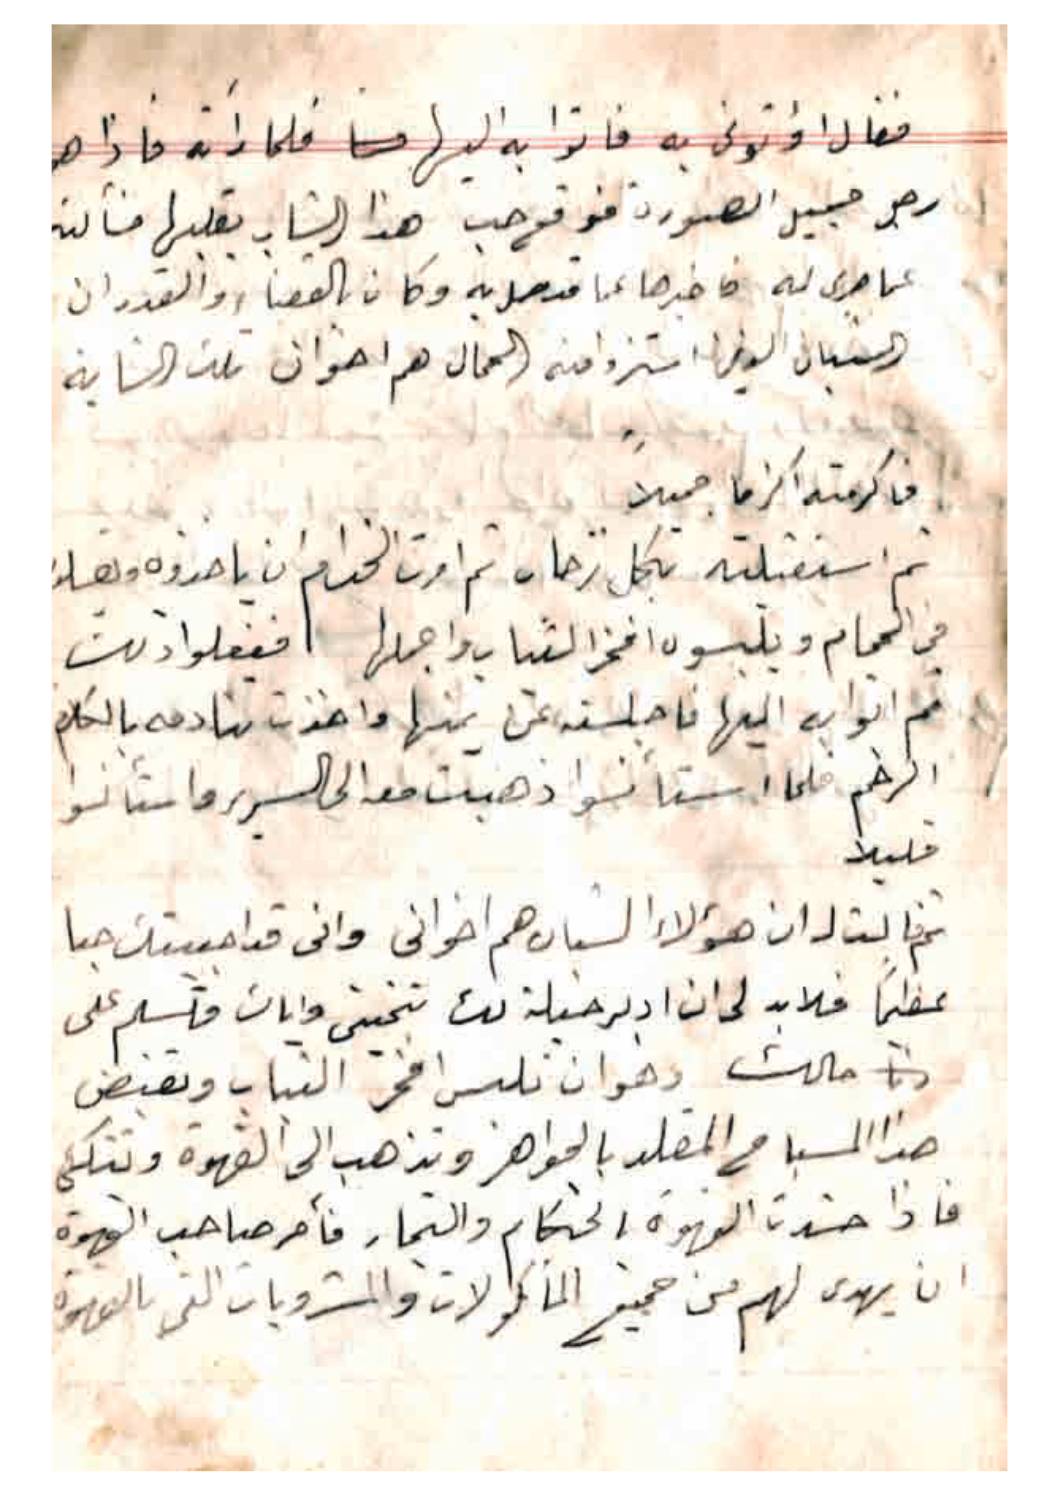 فقال اؤتونى به فاتوا به اليها فلما رأته فاذا هو
رجل جميل الصورة فوقع حب هذا الشاب بقلبها فسألته
عما جرى له فاخبرها عما قد حصل به وكان بالقضاء والقدر ان
الشبان الذين اشتروا منه الجمال هم اخوان تلك الشابة
فاكرمته اكراما جميلاً
ثم استقبلته بكل ترحاب ثم امرت الخدام ان ياخذوه
فى الحمام ويلبسوه افخر الثياب واجملها ففعلوا ذلك
ثم اتوا به اليها فاجلسته عن يمينها واخذت تنادمه بالكلام
الرخيم فلما استأنسوا ذهبت معه الى السرير واستأنسوا
قليلا
ثم قالت له ان هؤلاء الشبان هم اخوانى وانى قد احببتك حبا
عظيماً فلابد لى ان ادبر حيلة لك تنجينى واياك وتسلم على
حالك وهو ان تلبس افخر الثياب وتقبض
هذا المسباح المقلد بالجواهر وتذهب الى القهوة وتتكى
فاذا حشدت القهوة الحكام والتجار فأمر صاحب القهوة
ان يهدى لهم من جميع المأكولات والمشروبات التى بالقهوة